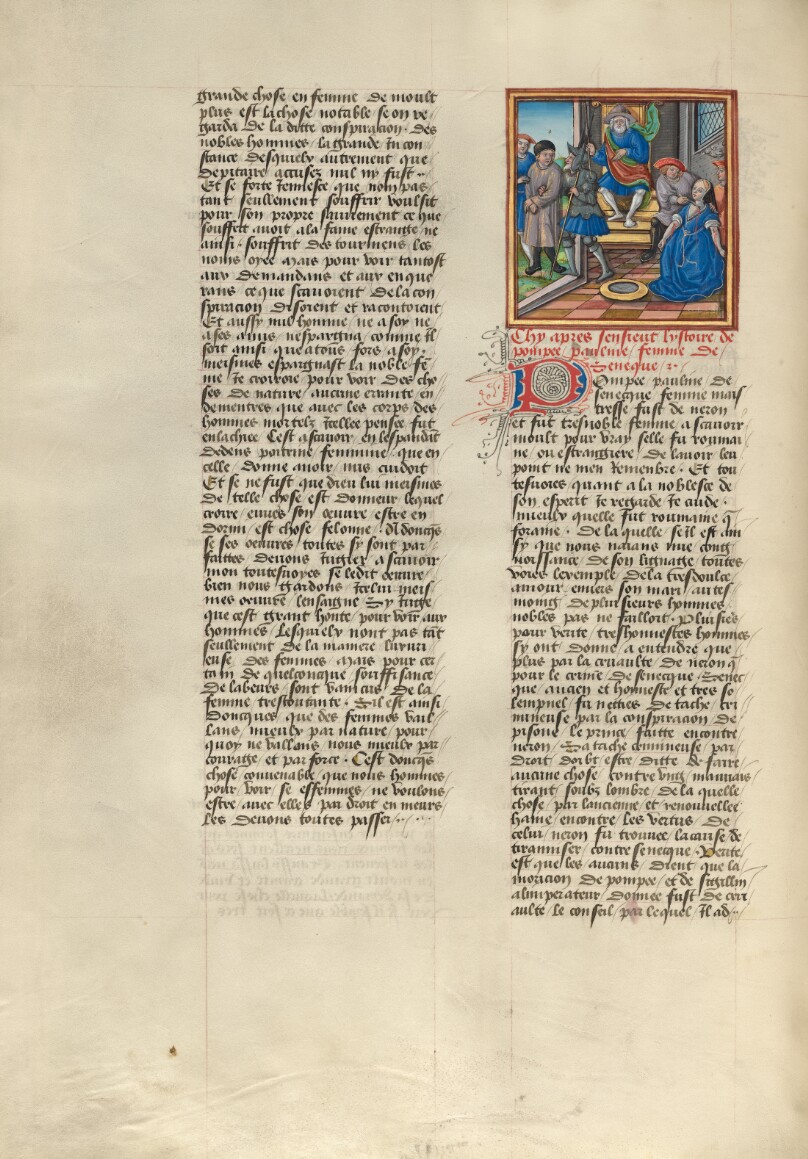 grande chose en femme de moult
plus est la chose notable se on re
garda de la ditte conspiracion des
nobles hommes la grande incon
stance desquelz autrement que
de pitaire accusez nul ny fust
Et se forte Iennesce que non pas
tant seullement souffrir voulsit
pour son propre sauuement ce que
souffert auoit a la fame estrange ne
ainsi souffrit des tourmens les
noms oyee Mais pour voir tantost
aux demandans et aux enque
rans ce que scauoient de la con
spiracion disoient et racontoient
Et aussy nul homme ne a soy ne
a ses amis nespargna comme il
soit ainsi que a tous fors a soy
meismes espargnast la noble fe
me Je croiroie pour voir des cho
ses de nature aucune erreur en
dementres que auec les corps des
hommes mortelz Icellee pensee fut
enlachiee Cest a scauoir en lespandit
dedens poitrine feminine que en
celle donne auoir mis cuidoit
Et se ne fust que dieu lui meismes
de telle chose est donneur lequel
croire enuers son oeuure estre en
dormi est chose felonne Et doncqs
se ses oeuures toutes sy sont par
faittes deuons Iugier a scauoir
mon toutesuoyes se ledit oeuure
bien nous gardons Icelui meis
mes oeuure lensaigne Sy Iuge
que cest grant honte pour voir aux
hommes lesquelz nont pas tat
seullement de la maniere luxuri
euse des femmes Mais pour cer
tain de quelconque souffisance
de labeurs sont vaincus de la
femme trestoutante Sil est ainsi
doncques que des femmes vail
lans mieulx par nature pour
quoy ne vallons nous mieulx par
courage et par force Cest doncqs
chose conuenable que nous hommes
pour voir se effeminez ne voulons
estre auec elles par droit en meurs
les deuons toutes passer
Chy apres sensieut lystoire de
pompee pauline femme de
Seneque
Pompee pauline de
senecque femme mais
tresse fust de neron
et fut tresnoble femme a scauoir
moult pour vray selle fu rommai
ne ou estrangiere de lauoir leu
point ne men Remembre Et tou
tesuoies quant a la noblesce de
son esperit Je regarde Je cuide
mieulx quelle fut rommaine q
foraine De la quelle se il est ain
sy que nous naians nue cong
noissance de son lignage toutes
voies lexemple de la tresdoulce
amour enuers son mari au tes
moing de pluisieurs hommes
nobles pas ne failloit Pluisies
pour verite tres honnestes hommes
sy ont donne a entendre que
plus par la cruaulte de neron q
pour le crime de senecque Senec
que ancien et honneste et tres so
lempnel fu netties de tache cri
mineuse par la conspiracion de
pisone le prince faitte encontre
neron Sa tache crimineuse par
droit doibt estre ditte de faire
aucune chose contre vng mauuais
tirant soubz lombre de la quelle
chose par lancienne et renouuellee
haine encontre les vertus de
celui neron fu trouuee la cause de
tiranniser contre senecque Verite
est que les aucuns dient que la
monicion de pompee et de sigillin
a limperateur donnee fust de cru
aulte le conseil par lequel Il ad